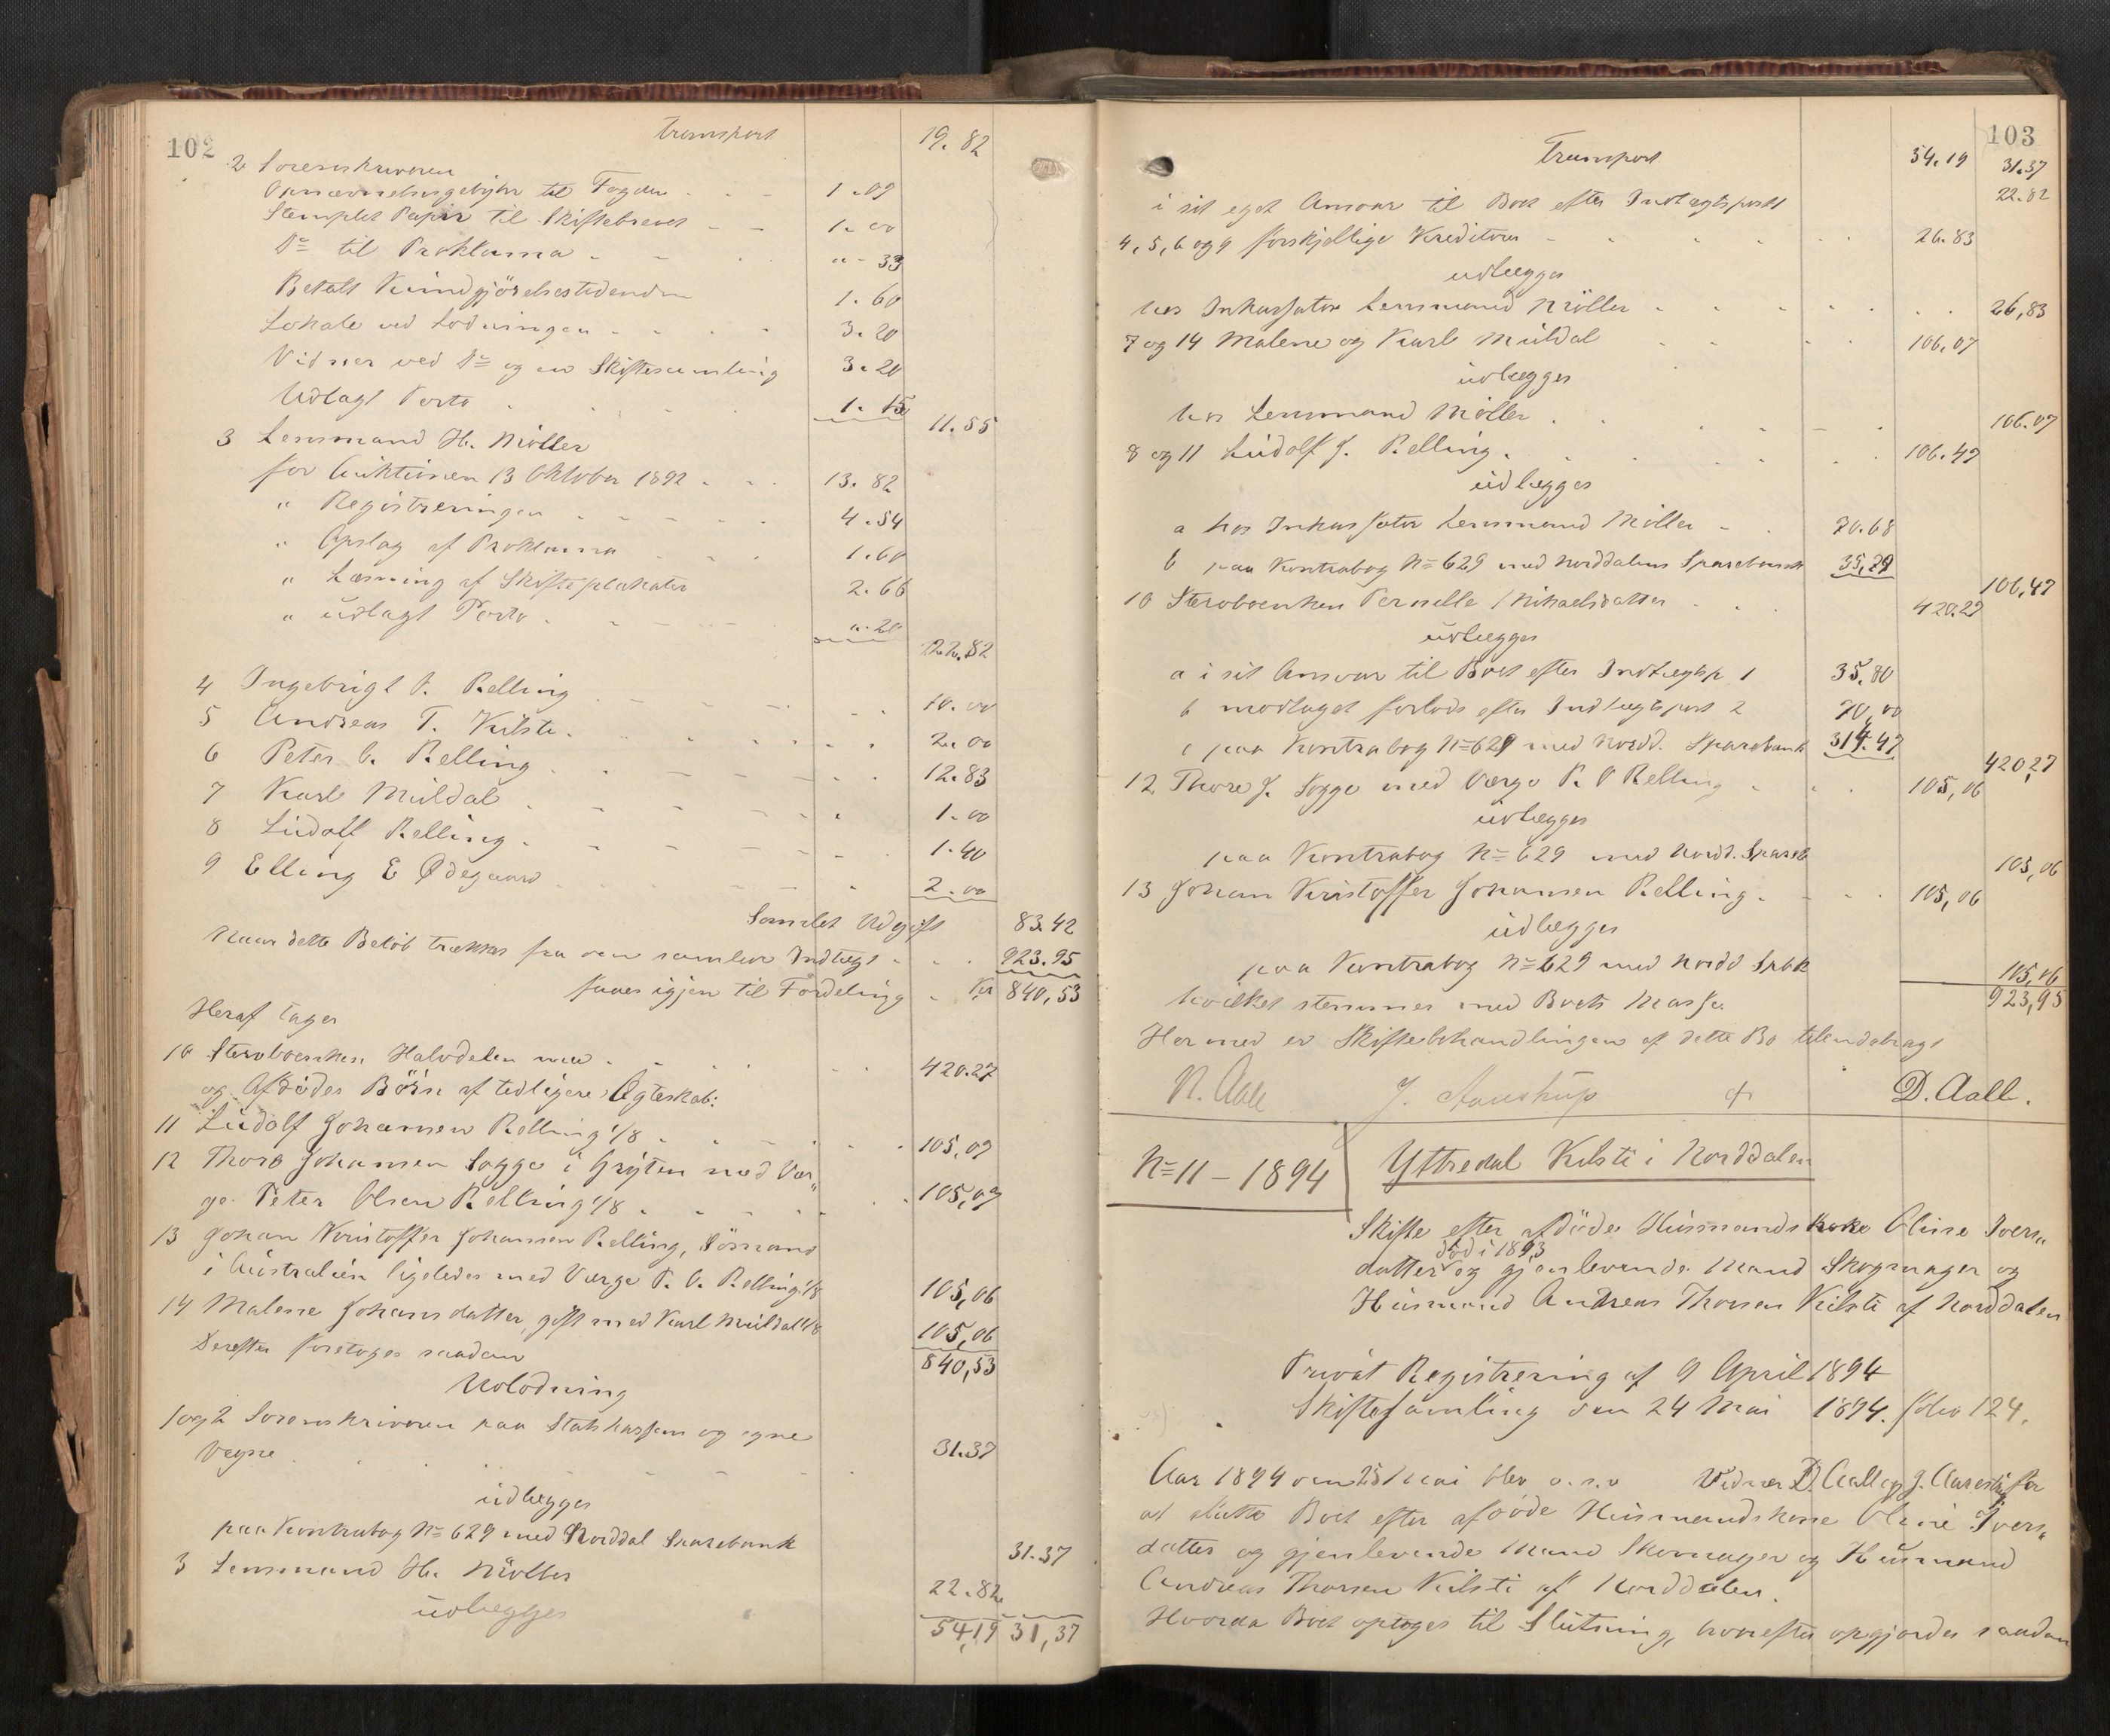 102
Transport 19.82
2 Sorenskriveren
Opnævnelsesgebyhr til Fogden 1.09
Stemplet Papir til Skiftebrevet 1.00
Do til Proklama " - 33
Betalt Kundgjörelsestidenden 1.60
Lokale ved Lodningen 3.20
Vidner ved Do og en Skiftesamling 3.20
Udlagt Porto 1.15 11.55
3 Lensmand H. Möller
for Auktionen 13 Oktober 1892 13.82
" Registreringen 4.54
" Opslag af Proklama 1.60
" Læsning af Skifteplakater 2.66
" udlagt Porto ".20
22.82
4 Ingebrigt O. Relling 10.00
5 Andreas T. Kilsti 2.00
6 Peter O. Relling 12.83
7 Karl Muldal 1.00
8 Ludolf Relling 1.40
9 Elling E Ødegaard 2.00
Samlet Udgift 83.42
Naar dette Belöb trækkes fra den samlede Indtægt 923.95
faaes igjen til Fordeling Kr 840,53
Heraf tager
10 Stervboenken Halvdelen med 420.27
og Afdödes Börn af tidligere Ægteskab:
11 Ludolf Johansen Relling 1/8 105,07
12 Thore Johansen Sogge i Grytten med Vær„
ge Peter Olsen Relling 1/8 105,07
13 Johan Kristoffer Johansen Relling, Sömand
i Australien ligeledes med Værge P. O. Relling 1/8 105,06
14 Malene Johansdatter, gift med Karl Muldal 1/8 105,06
Derefter foretoges saadan 840,53
Udlodning
1 og 2 Sorenskriveren paa Statskassen og egne
Vegne 31.37
udlægges
paa Kontrabog No 629 med Norddal Sparebank 31.37
3 Lensmand H. Möller 22.82
udlægges
54,19 31,37
103
Transport 54.19 31.37
i sit eget Ansvar til Boet efter Indtægtspost 22.82
4, 5, 6 og 9 forskjellige Kreditorer 26.83
udlægges
hos Inkassator Lensmand Möller 26,83
7 og 14 Malene og Karl Muldal 106,07
udlægges
hos Lensmand Möller 106.07
8 og 11 Ludolf J. Relling 106.47
udlægges
a hos Inkassator Lensmand Möller 70.68
b paa Kontrabog No 629 med Norddalens Sparebank 35,79
106,47
10 Stervboenken Pernille Mikaelsdatter 420.27
udlægges
a i sit Ansvar til Boet efter Indtægtsp 1 35,80
b modtaget forlods efter Indtægtspost 2 70,00
c paa Kontrabog No 629 med Nordd. Sparebank 314.47
420,27
12 Thore J. Sogge med Værge P. O Relling 105,06
udlægges
paa Kontrabog No 629 med Nordd. Spareb 105,06
13 Johan Kristoffer Johansen Relling 105,06
udlægges
paa Kontrabog No 629 med Nordd Spbk 105,06
hvilket stemmer med Boets Masse 923,95
Hermed er Skiftebehandlingen af dette Bo tilendebragt
N. Aall J. Aarestrup D. Aall.
No 11 - 1894 Yttredal Kilsti i Norddalen
Skifte efter afdöde Husmandskone Oline Ivers„
död i 1893
datter og gjenlevende Mand Skomager og
Husmand Andreas Thorsen Kilsti af Norddalen
Privat Registrering af 9 April 1894
Skiftesamling den 24 Mai 1894. folio 124.
Aar 1894 den 25 Mai blev o. s. v Vidner D. Aall og J. Aarestrup for
at slutte Boet efter afdöde Husmandskone Oline Ivers„
datter og gjenlevende Mand Skomager og Husmand
Andreas Thorsen Kilsti af Norddalen.
Hvorda Boet optoges til Slutning, hvorefter opgjordes saadan